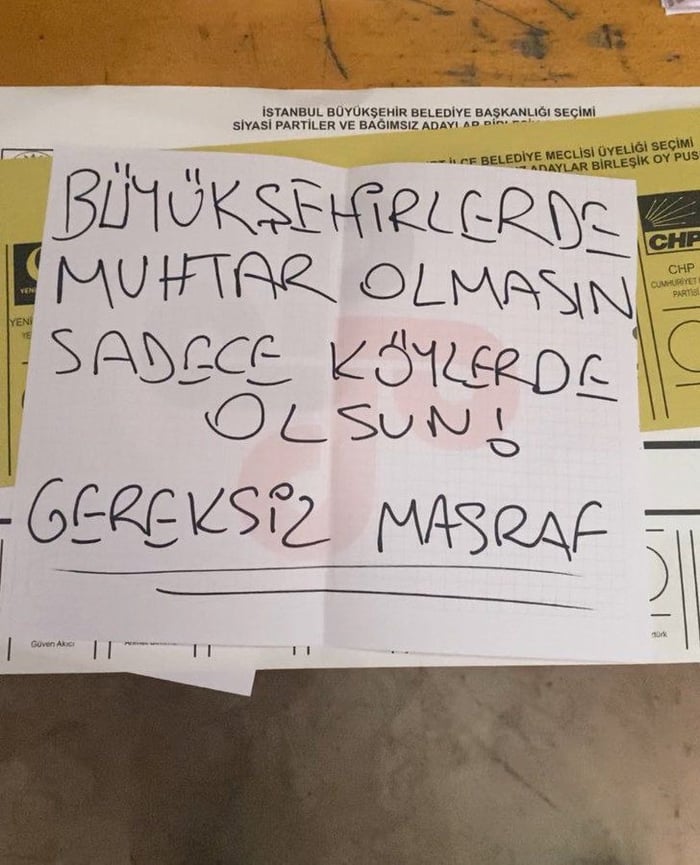 İSTANBUL BÜYÜKŞEHİR BELEDİYE BAŞKANLIĞI SEÇİMİ
SİYASİ PARTİLER VE BAĞIMSIZ ADAYLAR
İLÇE BELEDİYE MECLİSİ ÜYELİĞİ SEÇİMİ
ADAYLAR BİRLEŞİK OY PUS
BÜYÜKŞEHİRLERDE
MUHTAR OLMASIN
SADECE KÖYLERDE
OLSUN!
GEREKSİZ MASRAF
CHP
CHP
CUMHURİYET
PARTİSİ
YENİ
YENİ
YE
Güven Akıcı